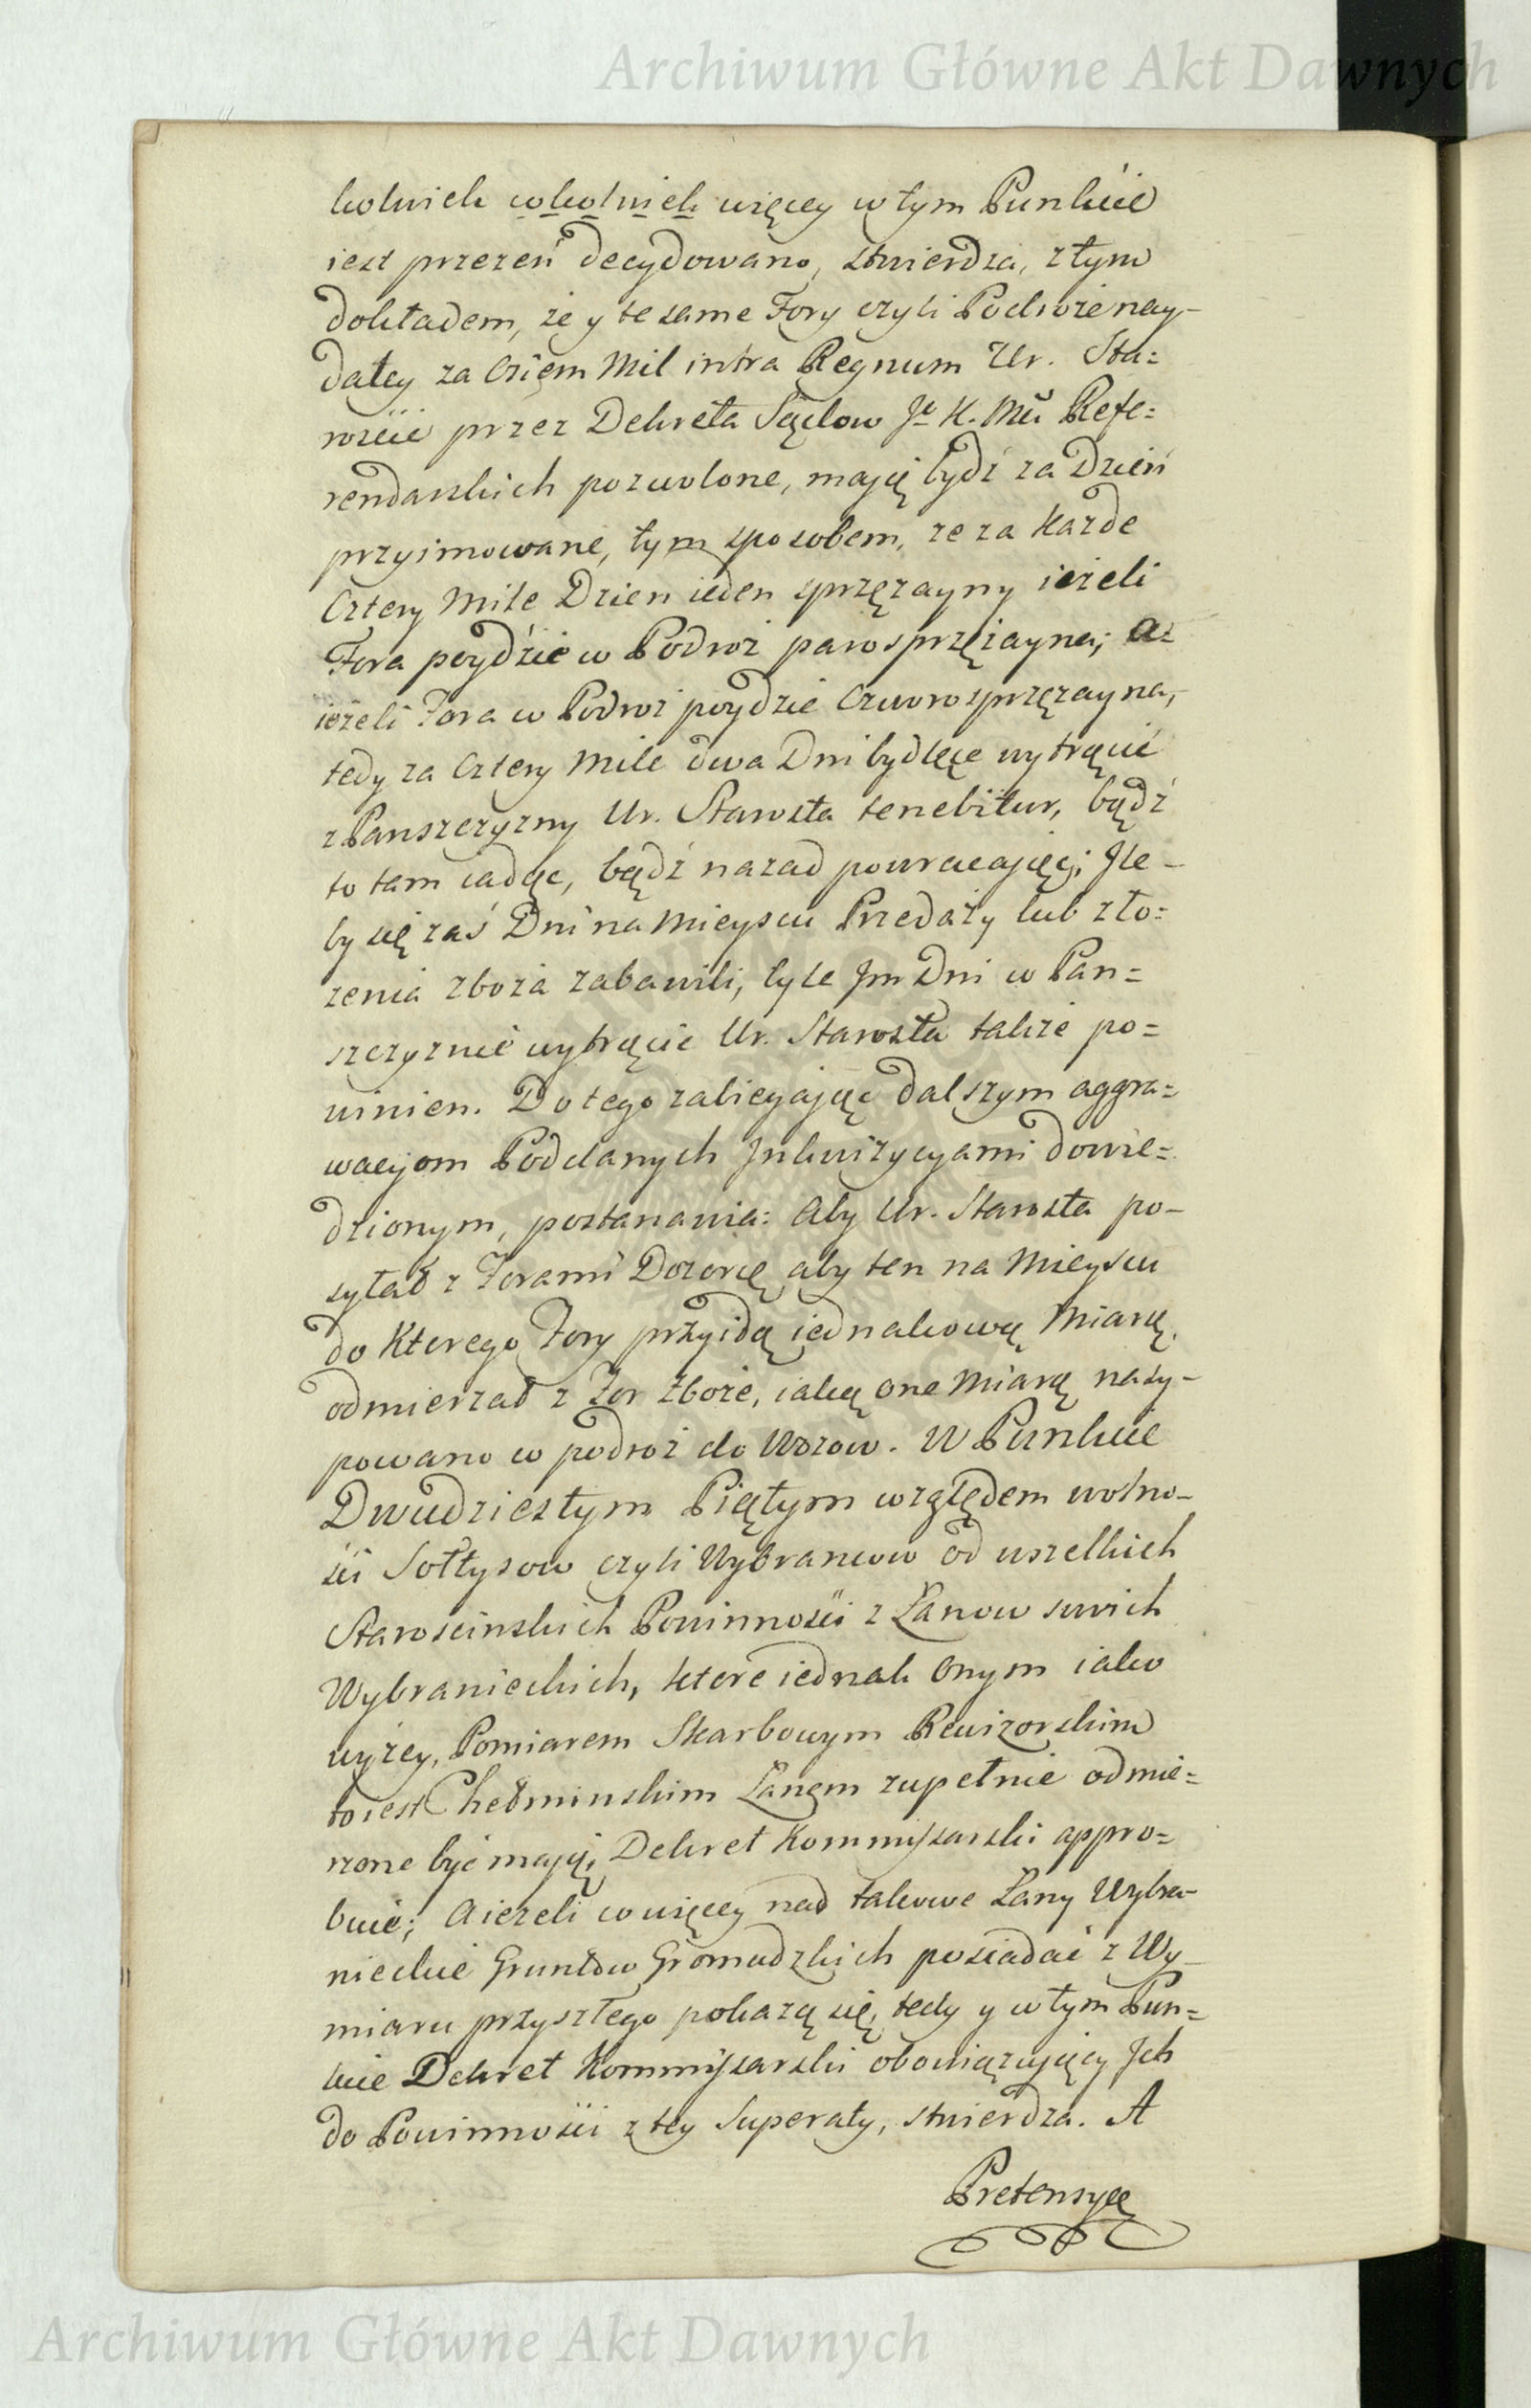 Archiwum Główne Akt Dawnych
kolwiek cokolwiek więcey w tym Punkcie
iest przezeń decydowano, stwierdza, z tym
dokładem, że y te same Fory czyli Podroże nay-
daley za Ośiem Mil intra Regnum Ur. Sta=
rośćie przez Dekreta Sądow Je K. Mći Refe=
rendarskich pozwolone, maią bydź za Dzień
przyimowane, tym sposobem, że za Każde
Cztery Mile Dzien ieden sprzężayny ieżeli
Fora poydźie w Podroż parosprzężayna; a=
ieżeli Fora w Podroż poydzie Czworosprzężayna,
tedy za Cztery Mile dwa Dni bydlęce wytrącić
z Panszczyzny Ur. Starosta tenebitur, bądź
to tam iadąc, bądź nazad powracaiąc; Ile-
by się zaś Dni na Mieyscu Przedaży lub zło=
żenia zboża zabawili, tyle Im Dni w Pan=
szczyznie wytrącić Ur. Starosta także po=
winien. Do tego zabiegaiąc dalszym aggra=
wacyom Poddanych Inkwizycyami dowie=
dzionym, postanawia: Aby Ur. Starosta po-
syłał z Forami Dozorcę, aby ten na Mieyscu
do Ktorego Fory przyidą iednakową Miarą,
odmierzał z For Zboże, iaką one Miarą nasy-
powano w podroż do Wozow. W Punkcie
Dwudziestym Piątym względem wolno-
śći Sołtysow czyli Wybrancow od wszelkich
Starościnskich Powinnośći z Łanow swich
Wybranieckich, ktore iednak Onym iako
wyżey, Pomiarem Skarbowym Rewizorskim
to iest Chełminskim Łanem zupełnie odmie=
rzone być maią, Dekret Kommissarski appro=
buie; A ieżeli co więcey nad takowe Łany Wybra-
nieckie Gruntow Gromadzkich posiadać z Wy-
miaru przyszłego pokażą się, tedy y w tym Pun=
kcie Dekret Kommissarski obowiązuiący Ich
do Powinnośći z tey Superaty, stwierdza. A
Pretensyę
Archiwum Główne Akt Dawnych